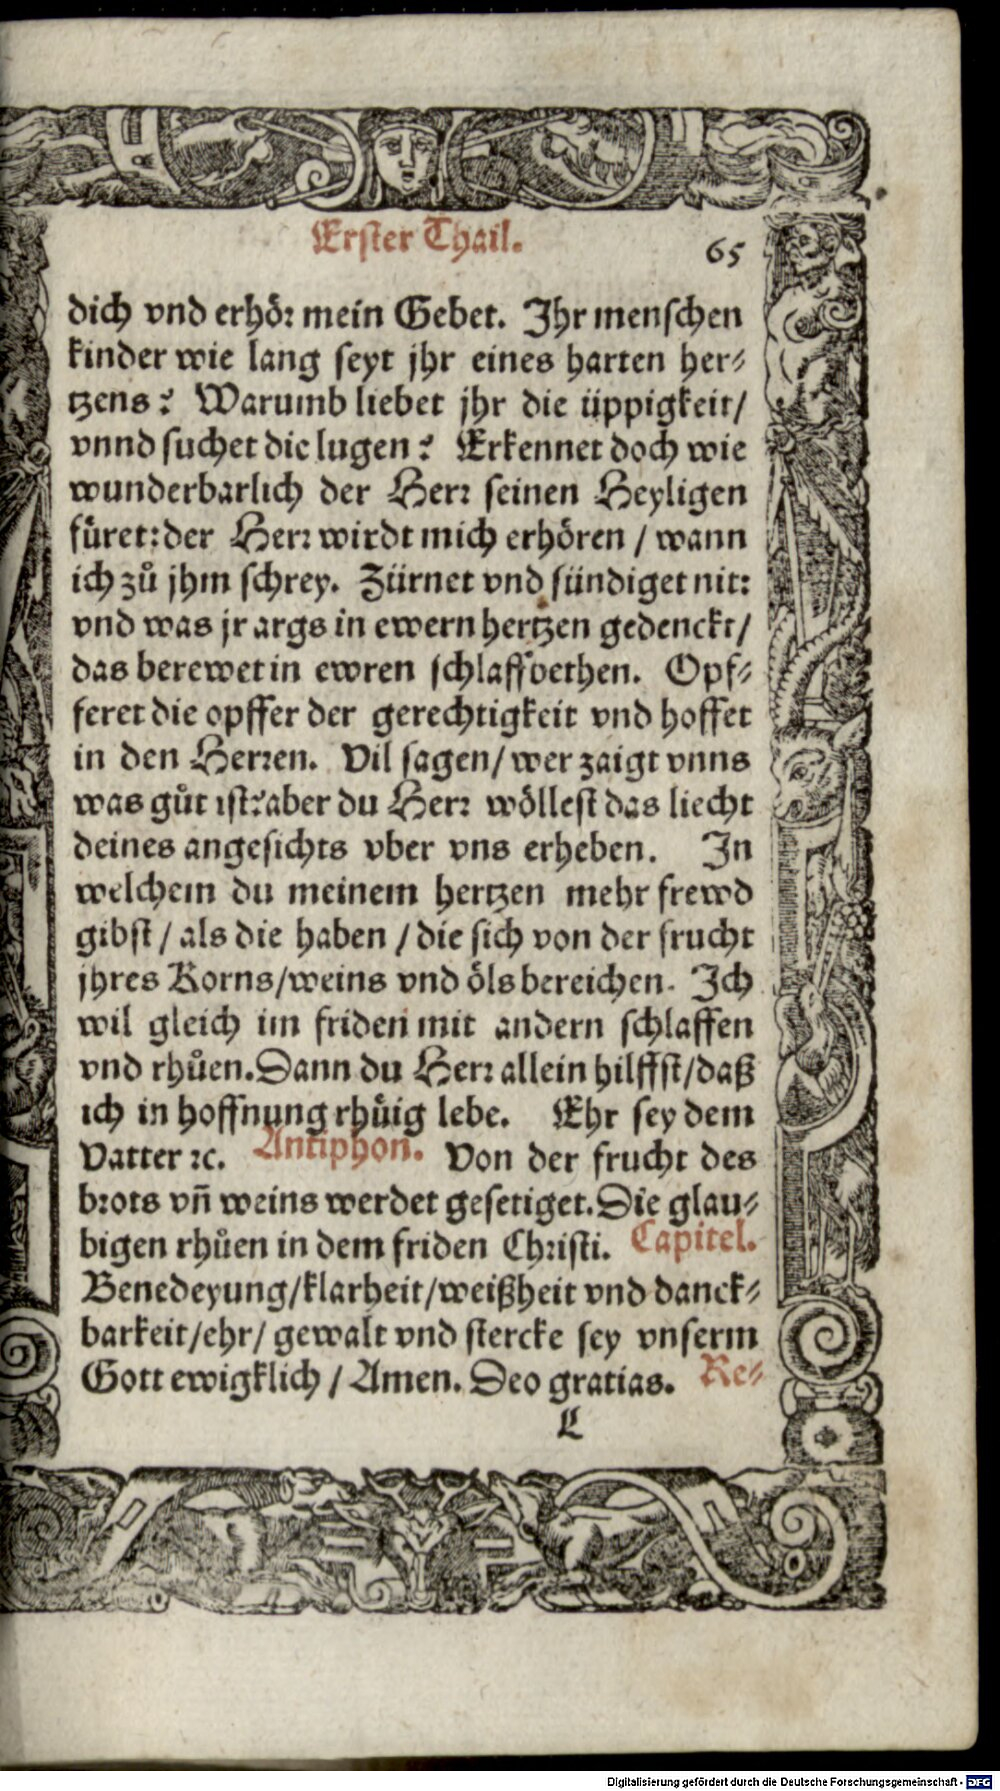 Erster Thail. 65
dich vnd erhör mein Gebet. Ihr menschen
kinder wie lang seyt jhr eines harten her⸗
tzens? Warumb liebet jhr die üppigkeit/
vnnd suchet die lugen? Erkennet doch wie
wunderbarlich der Herr seinen Heyligen
füret: der Herr wirdt mich erhören / wann
ich zů jhm schrey. Zürnet vnd sündiget nit:
vnd was jr args in ewern hertzen gedenckt/
das berewet in ewren schlaffbethen. Opf⸗
feret die opffer der gerechtigkeit vnd hoffet
in den Herren. Vil sagen/ wer zaigt vnns
was gůt ist? aber du Herr wöllest das liecht
deines angesichts vber vns erheben. In
welchem du meinem hertzen mehr frewd
gibst / als die haben / die sich von der frucht
jhres Korns/weins vnd öls bereichen. Ich
wil gleich im friden mit andern schlaffen
vnd rhůen. Dann du Herr allein hilffst/daß
ich in hoffnung rhůig lebe. Ehr sey dem
Vatter ꝛc. Antiphon. Von der frucht des
brots vñ weins werdet gesetiget. Die glau⸗
bigen rhůen in dem friden Christi. Capitel.
Benedeyung/klarheit/weißheit vnd danck⸗
barkeit/ehr/ gewalt vnd stercke sey vnserm
Gott ewigklich / Amen. Deo gratias. Re⸗
L
Digitalisierung gefördert durch die Deutsche Forschungsgemeinschaft - DFG